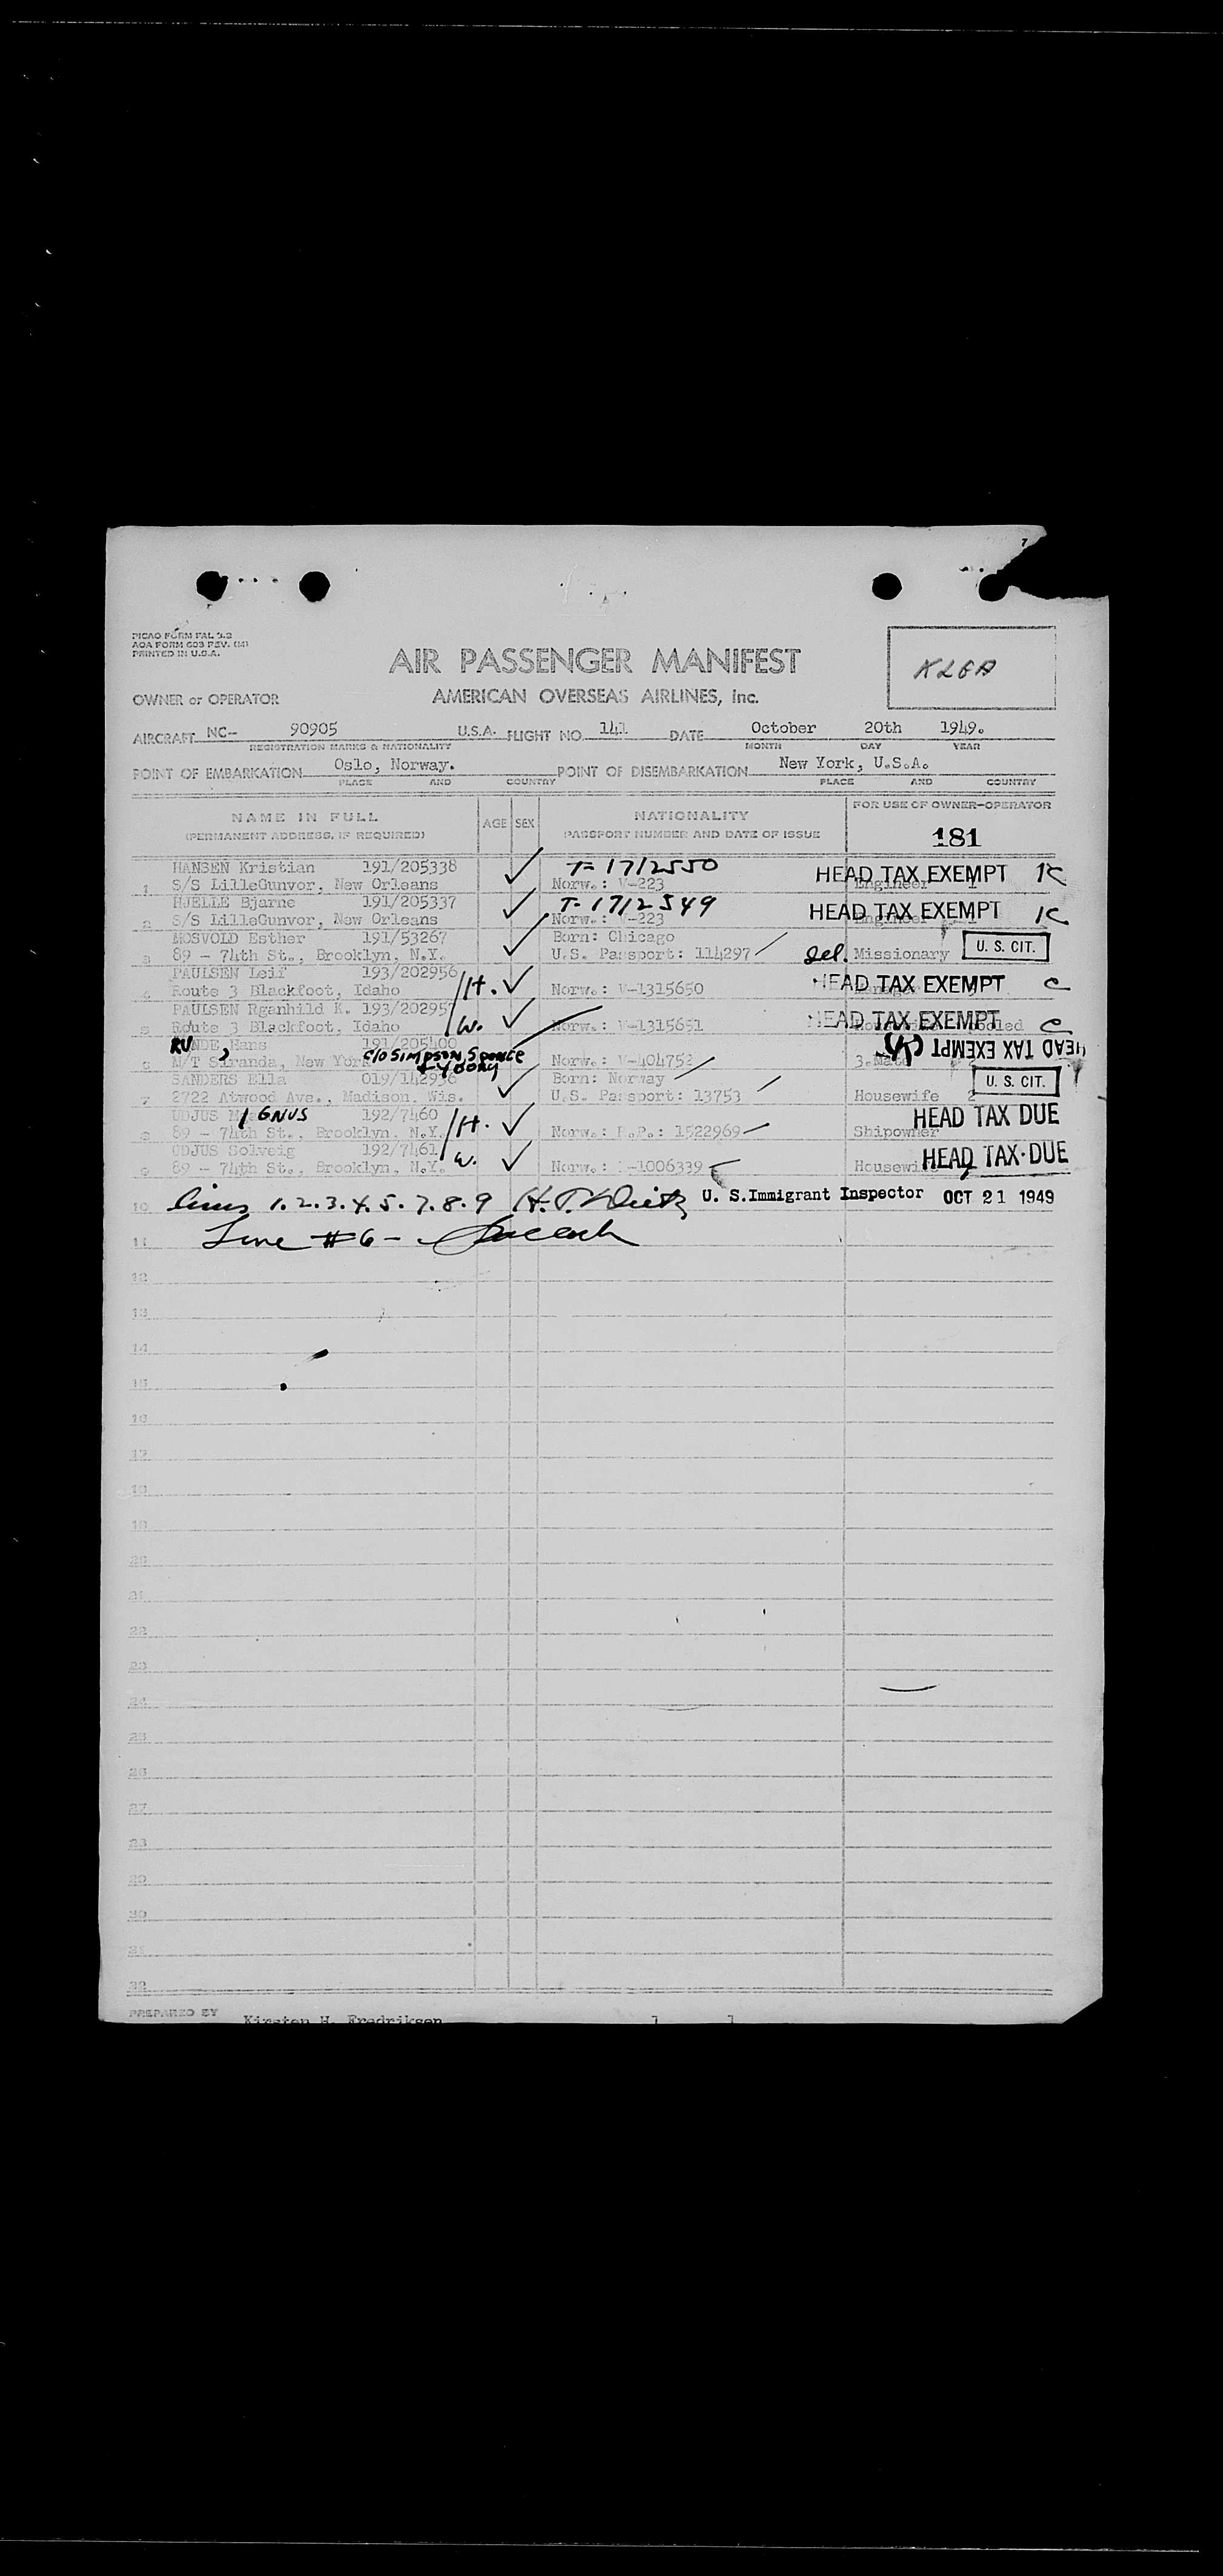 7
PICAO FORM FAL 3.2
AOA FORM 603 REV. (M)
PRINTED IN U.S.A.
AIR PASSENGER MANIFEST
KLEA
OWNER or OPERATOR AMERICAN OVERSEAS AIRLINES, Inc.
AIRCRAFT NC- 90905 U.S.A. FLIGHT NO. 141 DATE October 20th 1949.
REGISTRATION MARKS & NATIONALITY MONTH DAY YEAR
POINT OF EMBARKATION Oslo, Norway. POINT OF DISEMBARKATION New York, U.S.A.
PLACE AND COUNTRY PLACE AND COUNTRY
NAME IN FULL AGE SEX NATIONALITY FOR USE OF OWNER-OPERATOR
(PERMANENT ADDRESS, IF REQUIRED) PASSPORT NUMBER AND DATE OF ISSUE 181
HANSEN Kristian 191/205338 T-1712550 HEAD TAX EXEMPT K
1 S/S LilleGunvor, New Orleans Norw.: V-223 Engineer
HJELLE Bjarne 191/205337 T-1712549 HEAD TAX EXEMPT K
2 S/S LilleGunvor, New Orleans Norw.: V-223 Engineer
MOSVOLD Esther 191/53267 Born: Chicago
3 89 - 74th St., Brooklyn, N.Y. U.S. Passport: 114297 Missionary U. S. CIT.
PAULSEN Leif 193/202956 HEAD TAX EXEMPT C
4 Route 3 Blackfoot, Idaho H. Norw.: V-1315650
PAULSEN Rganhild K. 193/202957 HEAD TAX EXEMPT C
5 Route 3 Blackfoot, Idaho W. Norw.: V-1315651
RUNDE, Hans 191/205400 HEAD TAX EXEMPT
6 M/T Siranda, New York c/o SIMPSON, Spence + YOUNG Norw.: V-404752 3.Mate
SANDERS Ella 019/142936 Born: Norway U. S. CIT.
7 2722 Atwood Ave., Madison, Wis. U.S. Passport: 13753 Housewife 2
UDJUS MAGNUS 192/7460 HEAD TAX DUE
8 89 - 74th St., Brooklyn, N.Y. H. Norw.: R.P.: 1522969 Shipowner
UDJUS Solveig 192/7461 HEAD TAX DUE
9 89 - 74th St., Brooklyn, N.Y. W. Norw.: I-1006339 Housewife
10 Lines 1.2.3.4.5.7.8.9 U. S. Immigrant Inspector OCT 21 1949
11 Line #6 -
12
13
14
15
16
17
18
19
20
21
22
23
24
25
26
27
28
29
30
31
32
PREPARED BY Kirsten H. Fredriksen 1 1